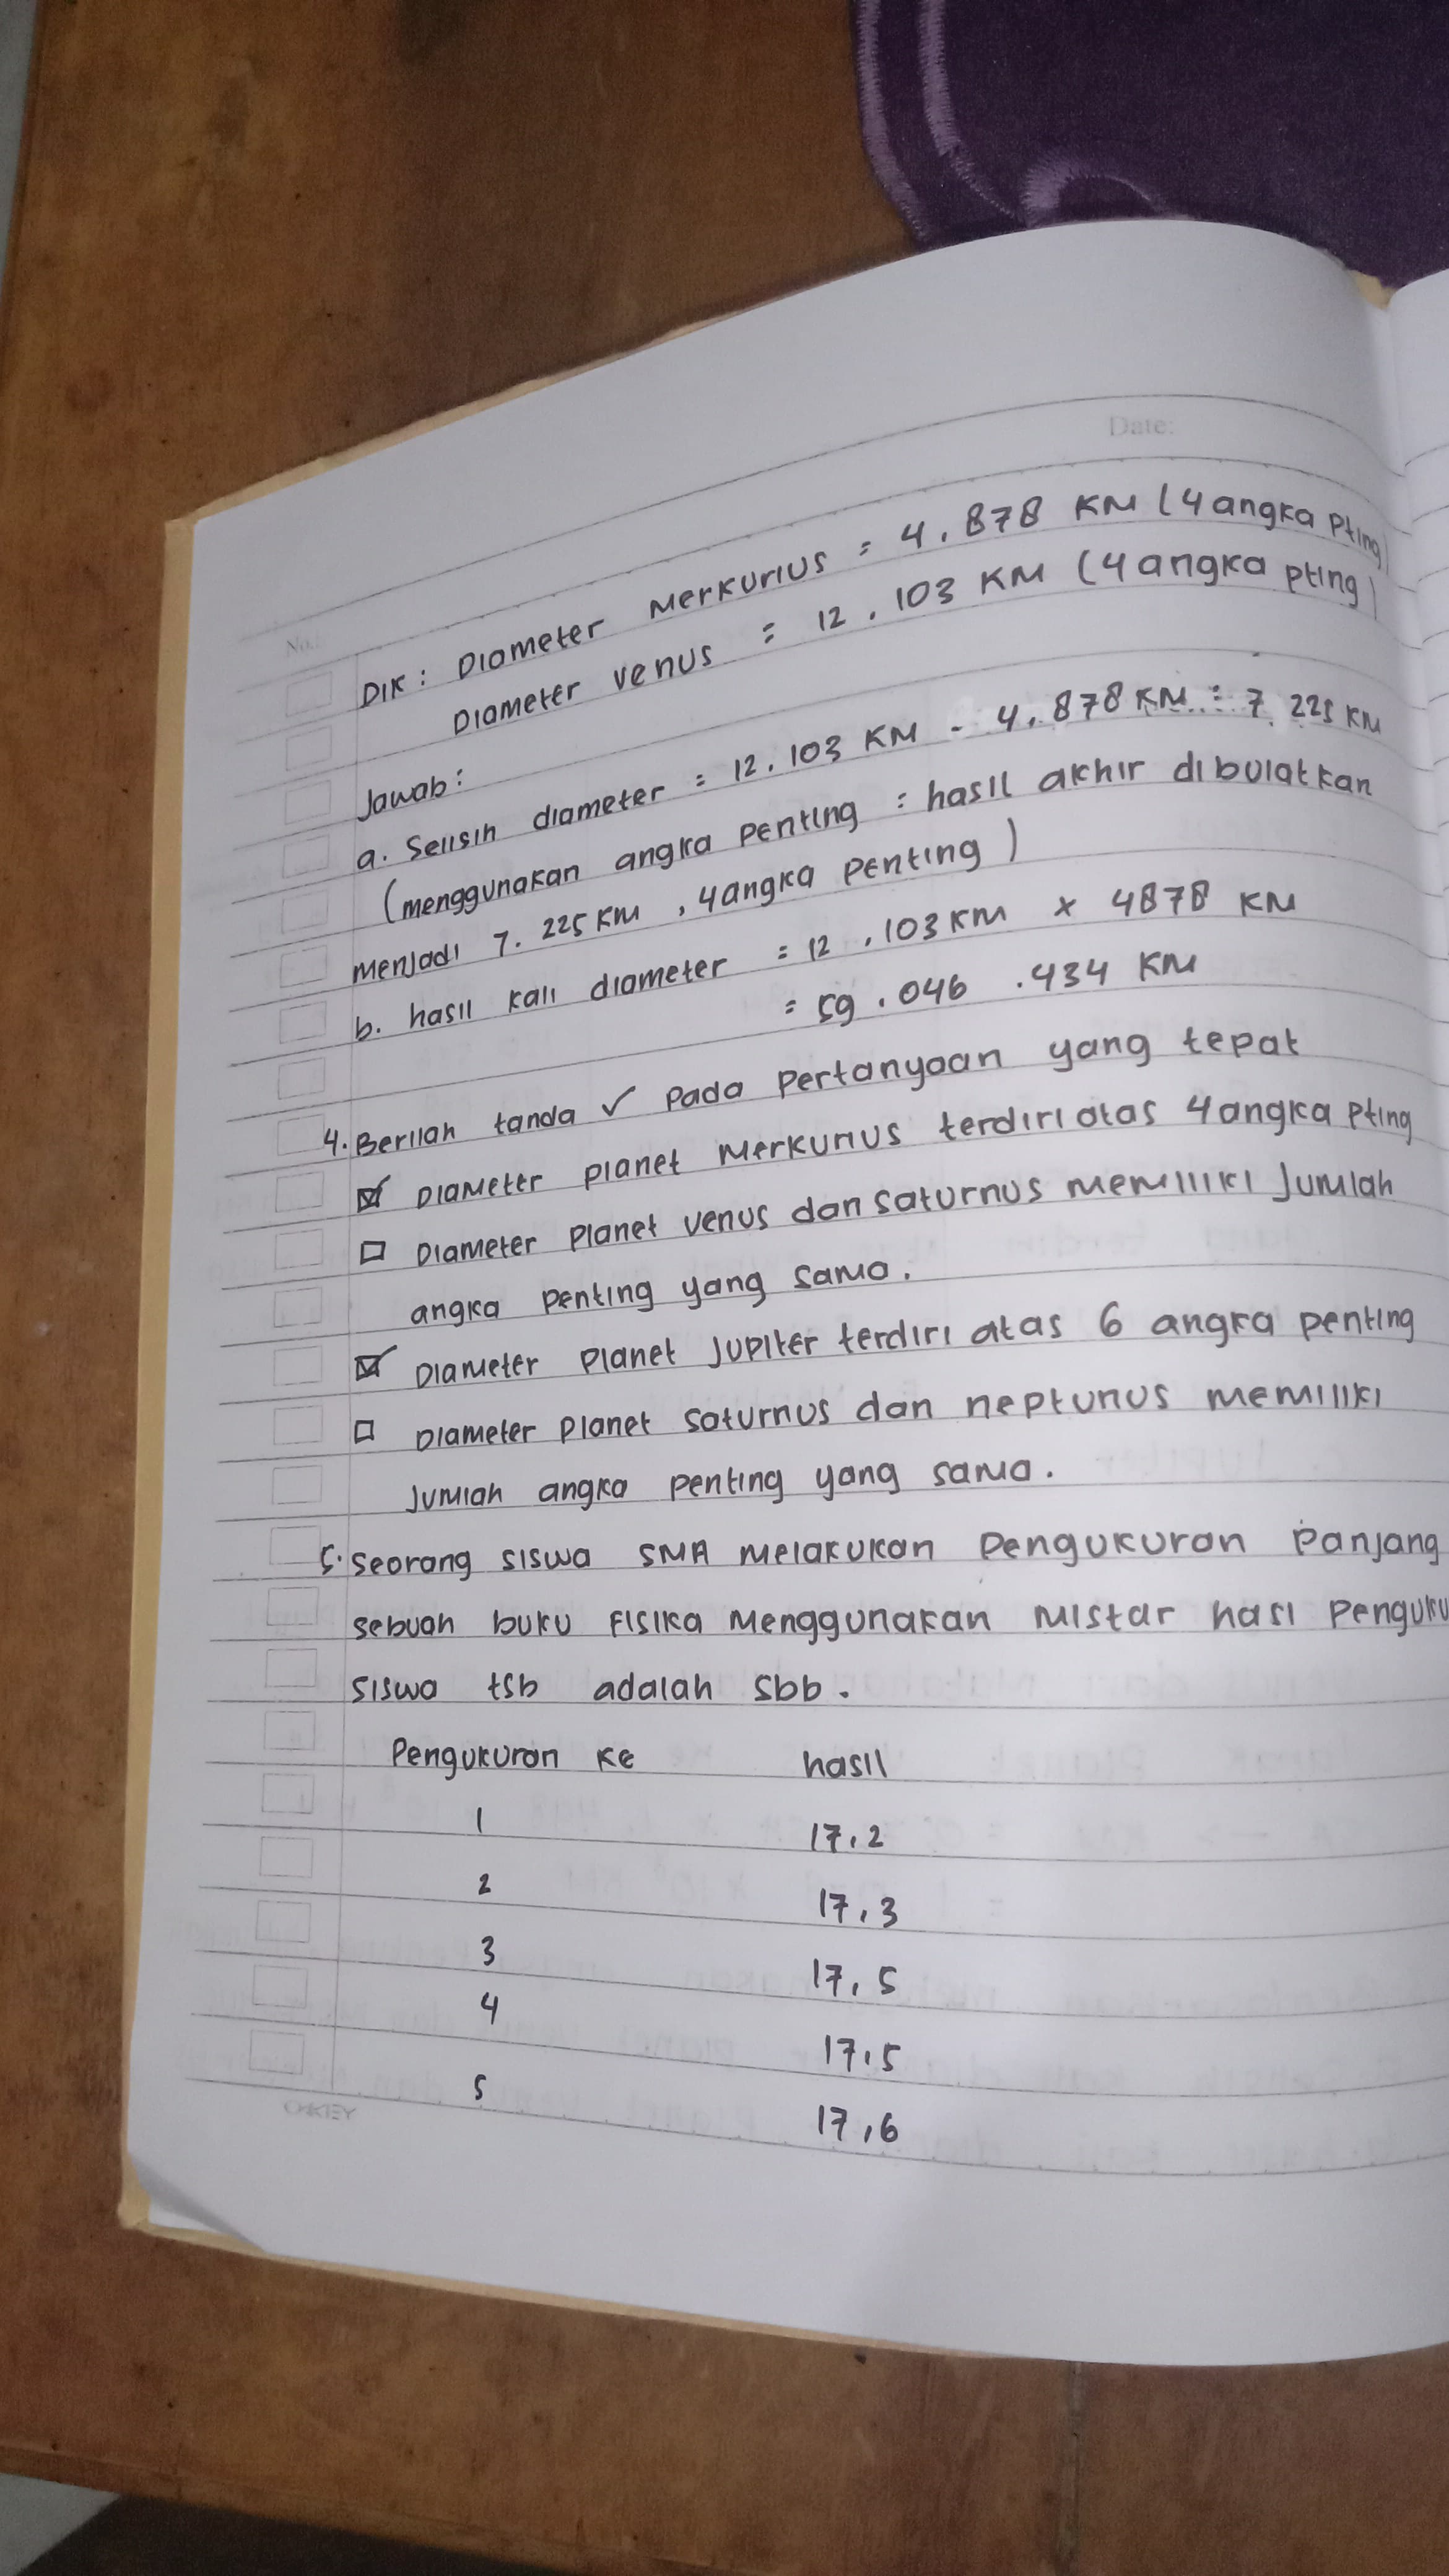 Date:
No.
DIK : Diameter Merkurius = 4.878 KM (4 angka pting)
Diameter venus = 12.103 KM (4 angka pting)
Jawab :
a. Selisih diameter = 12.103 KM - 4.878 KM = 7.225 KM
(menggunakan angka penting : hasil akhir dibulatkan
menjadi 7.225 KM, 4 angka penting)
b. hasil kali diameter = 12.103 KM x 4878 KM
= 59.046.434 KM
4. Berilah tanda ✓ Pada Pertanyaan yang tepat
☑ Diameter planet Merkurius terdiri atas 4 angka Pting
☐ Diameter Planet venus dan saturnus memiliki Jumlah
angka Penting yang sama.
☑ Diameter Planet Jupiter terdiri atas 6 angka penting
☐ Diameter Planet saturnus dan neptunus memiliki
Jumlah angka penting yang sama.
5. seorang siswa SMA melakukan Pengukuran Panjang
sebuah buku Fisika menggunakan mistar hasi Penguku
siswa tsb adalah sbb.
Pengukuran Ke hasil
1 17,2
2 17,3
3 17,5
4 17,5
5 17,6
OKEY